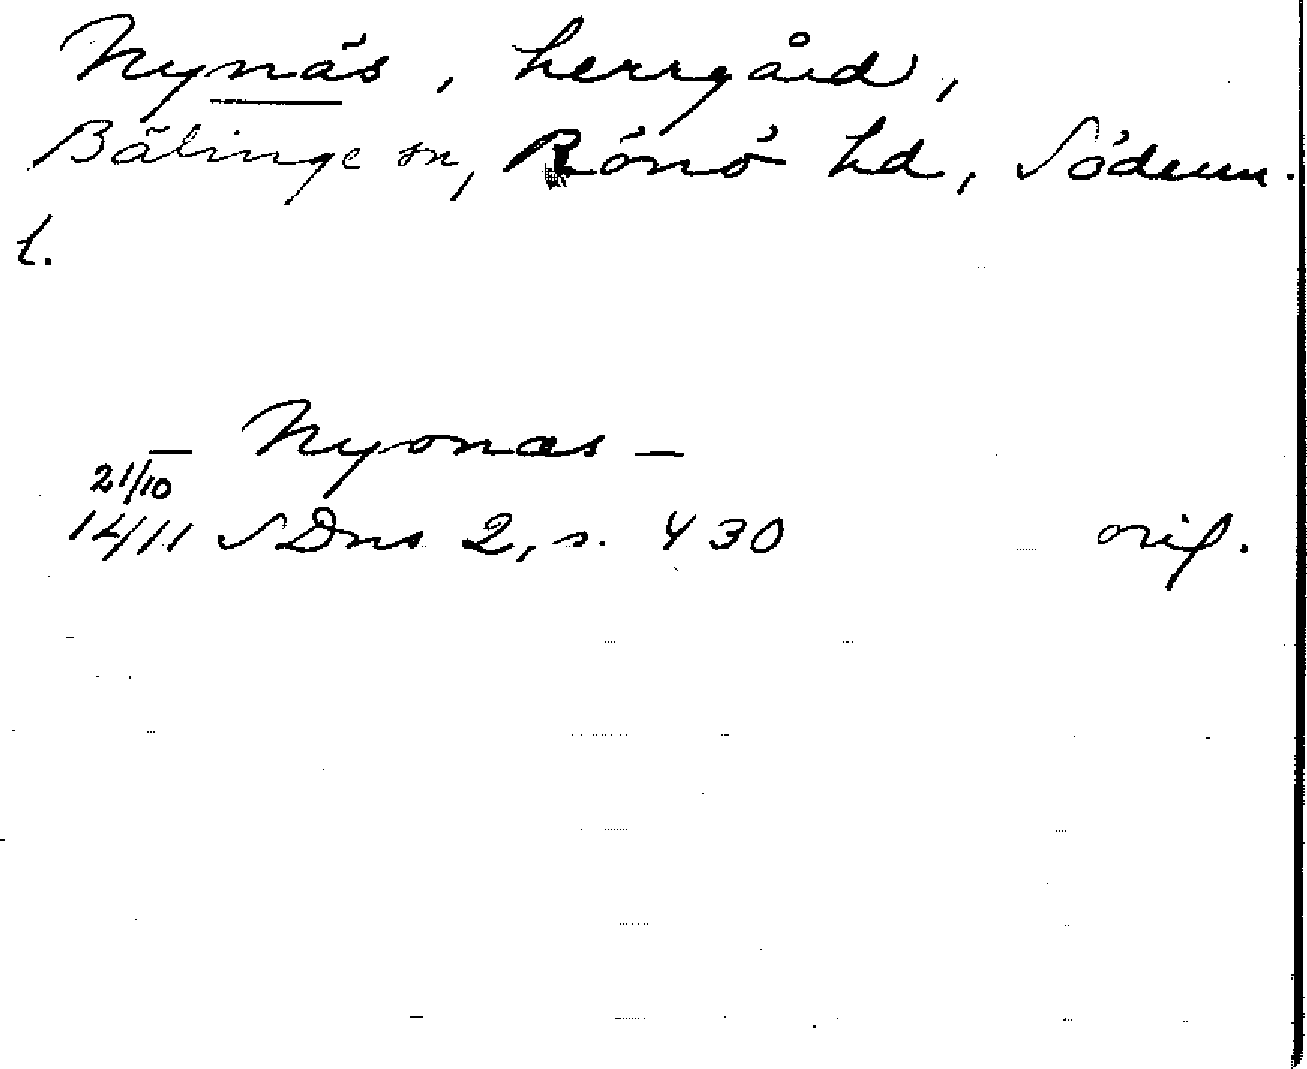 Nynäs, herrgård,
Bälinge sn, Rönö hd, Söderm.
l.
— Nyonas —
21/10
14/11 SDns 2, s. 430 orig.